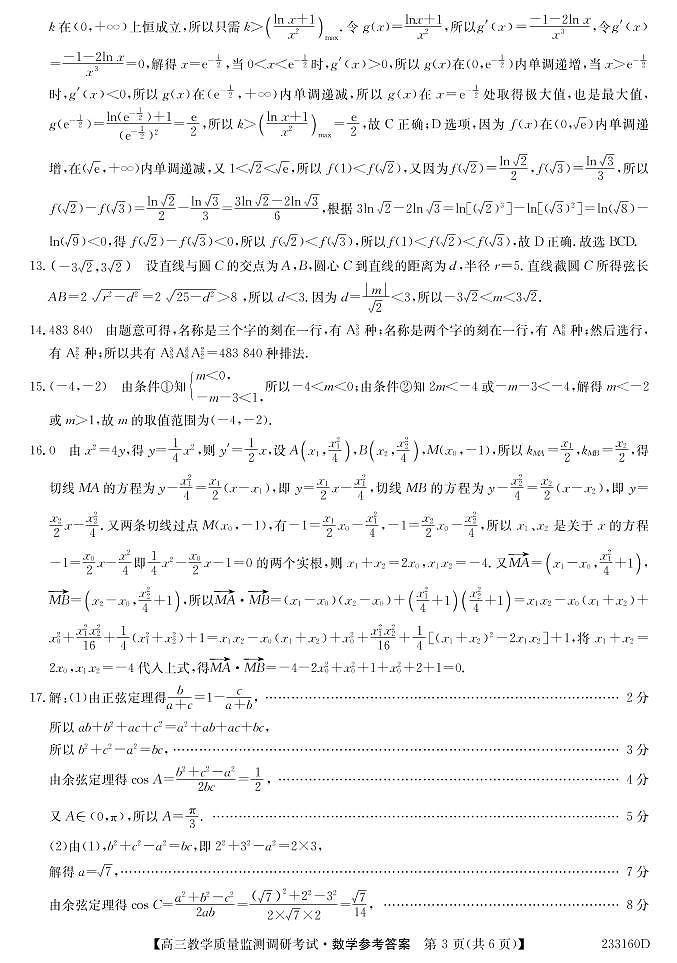 k在(0,+∞)上恒成立,所以只需 k>((ln x+1)/x²)max.令 g(x)=(lnx+1)/x²,所以g′(x)=(−1−2ln x)/x³,令g′(x)
=(−1−2ln x)/x³=0,解得 x=e^(−1/2),当 0<x<e^(−1/2)时,g′(x)>0,所以 g(x)在(0,e^(−1/2))内单调递增,当 x>e^(−1/2)
时,g′(x)<0,所以 g(x)在(e^(−1/2),+∞)内单调递减,所以 g(x)在 x=e^(−1/2)处取得极大值,也是最大值,
g(e^(−1/2))=(ln(e^(−1/2))+1)/(e^(−1/2))²=e/2,所以 k>((ln x+1)/x²)max=e/2,故 C 正确;D选项,因为 f(x)在(0,√e)内单调递
增,在(√e,+∞)内单调递减,又 1<√2<√e,所以 f(1)<f(√2),又因为f(√2)=ln √2/2,f(√3)=ln √3/3,所以
f(√2)−f(√3)=ln √2/2−ln √3/3=(3ln √2−2ln √3)/6,根据 3ln √2−2ln √3=ln[(√2)³]−ln[(√3)²]=ln(√8)−
ln(√9)<0,得 f(√2)−f(√3)<0,所以 f(√2)<f(√3),所以f(1)<f(√2)<f(√3),故 D 正确.故选 BCD.
13.(−3√2,3√2) 设直线与圆 C 的交点为 A,B,圆心 C 到直线的距离为 d,半径 r=5.直线截圆 C 所得弦长
AB=2√(r²−d²)=2√(25−d²)>8,所以 d<3.因为 d=|m|/√2<3,所以−3√2<m<3√2.
14.483 840 由题意可得,名称是三个字的刻在一行,有 A₃³ 种;名称是两个字的刻在一行,有 A₈⁸ 种;然后选行,
有 A₂² 种;所以共有 A₃³A₈⁸A₂²=483 840 种排法.
15.(−4,−2) 由条件①知{m<0, −m−3<1,所以−4<m<0;由条件②知 2m<−4 或−m−3<−4,解得 m<−2
或 m>1,故 m 的取值范围为(−4,−2).
16.0 由 x²=4y,得 y=1/4x²,则 y′=1/2x,设 A(x₁,x₁²/4),B(x₂,x₂²/4),M(x₀,−1),所以 kMA=x₁/2,kMB=x₂/2,得
切线 MA 的方程为 y−x₁²/4=x₁/2(x−x₁),即 y=x₁/2x−x₁²/4,切线 MB 的方程为 y−x₂²/4=x₂/2(x−x₂),即 y=
x₂/2x−x₂²/4.又两条切线过点 M(x₀,−1),有−1=x₁/2x₀−x₁²/4,−1=x₂/2x₀−x₂²/4,所以 x₁、x₂ 是关于 x 的方程
−1=x₀/2x−x²/4即1/4x²−x₀/2x−1=0 的两个实根,则 x₁+x₂=2x₀,x₁x₂=−4.又MA→=(x₁−x₀,x₁²/4+1),
MB→=(x₂−x₀,x₂²/4+1),所以MA→·MB→=(x₁−x₀)(x₂−x₀)+(x₁²/4+1)(x₂²/4+1)=x₁x₂−x₀(x₁+x₂)+
x₀²+x₁²x₂²/16+1/4(x₁²+x₂²)+1=x₁x₂−x₀(x₁+x₂)+x₀²+x₁²x₂²/16+1/4[(x₁+x₂)²−2x₁x₂]+1,将 x₁+x₂=
2x₀,x₁x₂=−4 代入上式,得MA→·MB→=−4−2x₀²+x₀²+1+x₀²+2+1=0.
17.解:(1)由正弦定理得b/(a+c)=1−c/(a+b),…… 2 分
所以 ab+b²+ac+c²=a²+ab+ac+bc,
所以 b²+c²−a²=bc,…… 3 分
由余弦定理得 cos A=(b²+c²−a²)/2bc=1/2,…… 4 分
又 A∈(0,π),所以 A=π/3.…… 5 分
(2)由(1),b²+c²−a²=bc,即 2²+3²−a²=2×3,
解得 a=√7,…… 7 分
由余弦定理得 cos C=(a²+b²−c²)/2ab=((√7)²+2²−3²)/(2×√7×2)=√7/14,…… 8 分
【高三教学质量监测调研考试·数学参考答案 第 3 页(共 6 页)】 233160D